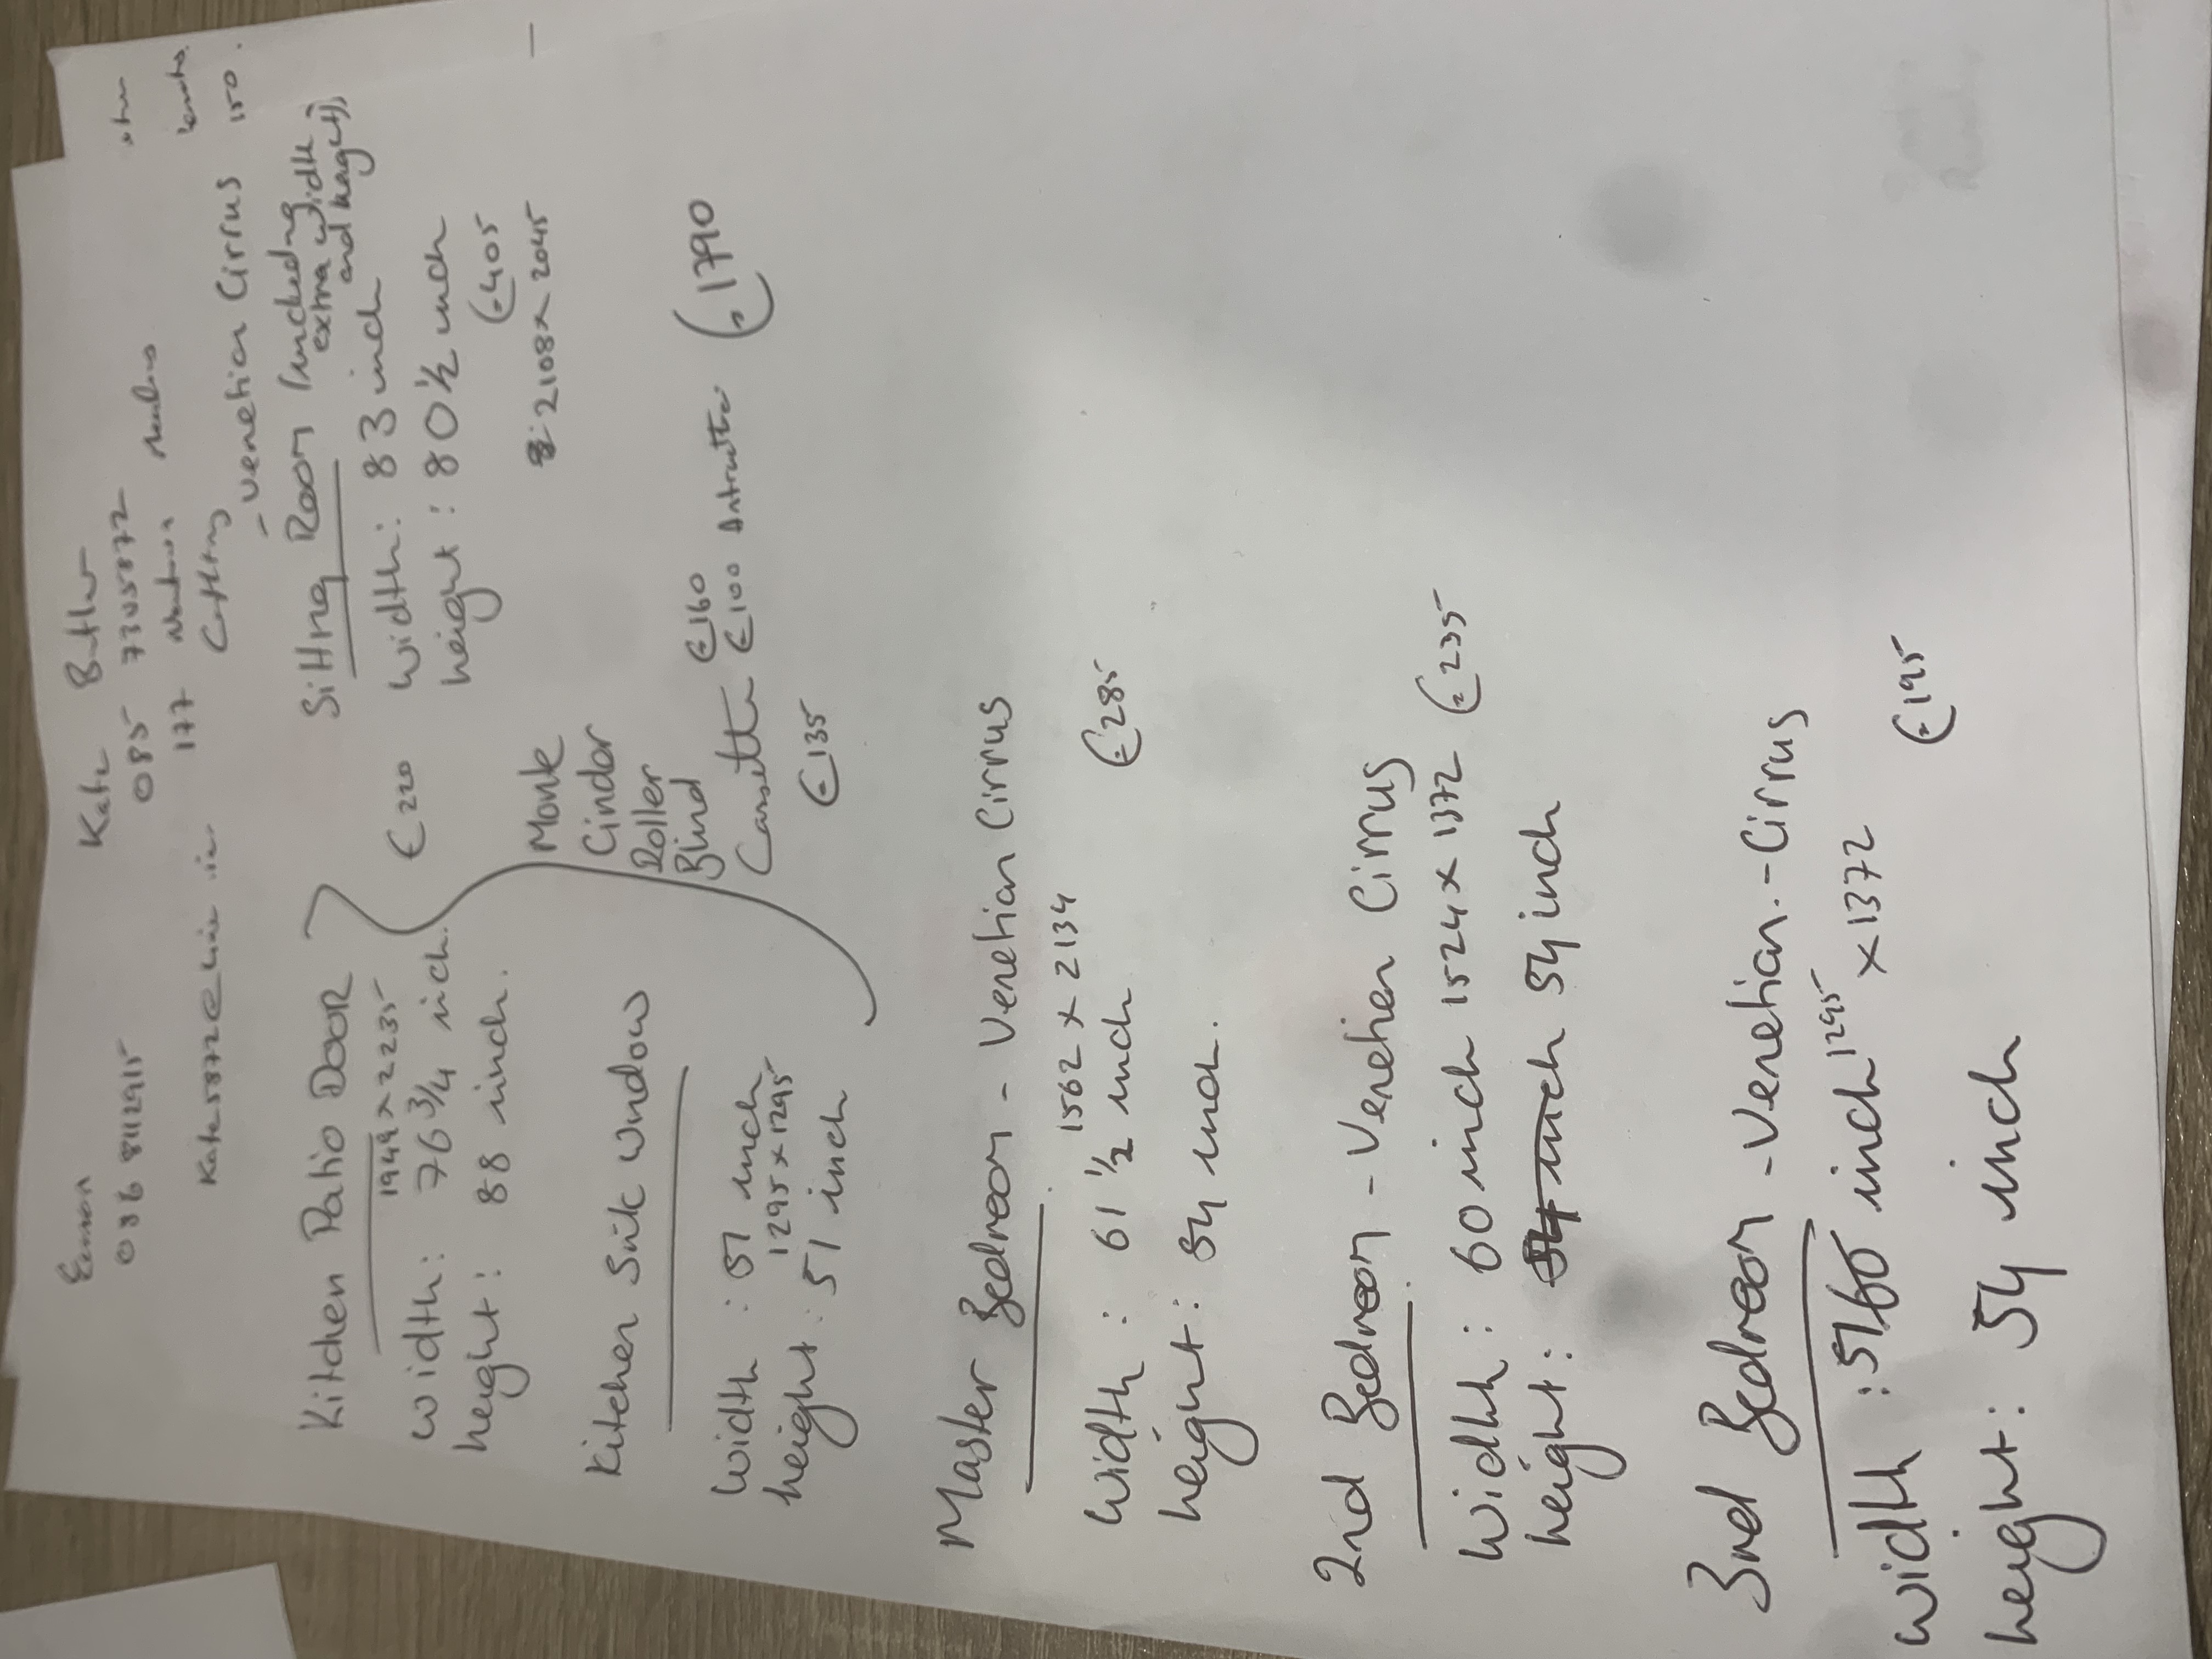 Eamon
086 8112915
Kate Butler
085 7305872
177
Kitchen Patio DOOR
1949 x 2235
width: 76 3/4 inch.
height: 88 inch.
€220
- Venetian Cirrus 150.
Sitting Room (including
extra width
and height)
width: 83 inch
height: 80 1/2 inch
€405
2108 x 2045
Kitchen Sink Window
width: 51 inch
1295 x 1295
height: 51 inch
Monk
Cinder
Roller
Blind €160
Cassette €100
€135
€1790
Master Bedroom - Venetian Cirrus
1562 x 2134
width: 61 1/2 inch
height: 84 inch.
€285
2nd Bedroom - Venetian Cirrus
width: 60 inch 1524 x 1372 €235
height: 54 inch 54 inch
3rd Bedroom - Venetian - Cirrus
width: 51 inch 1295 x 1372
height: 54 inch
€195